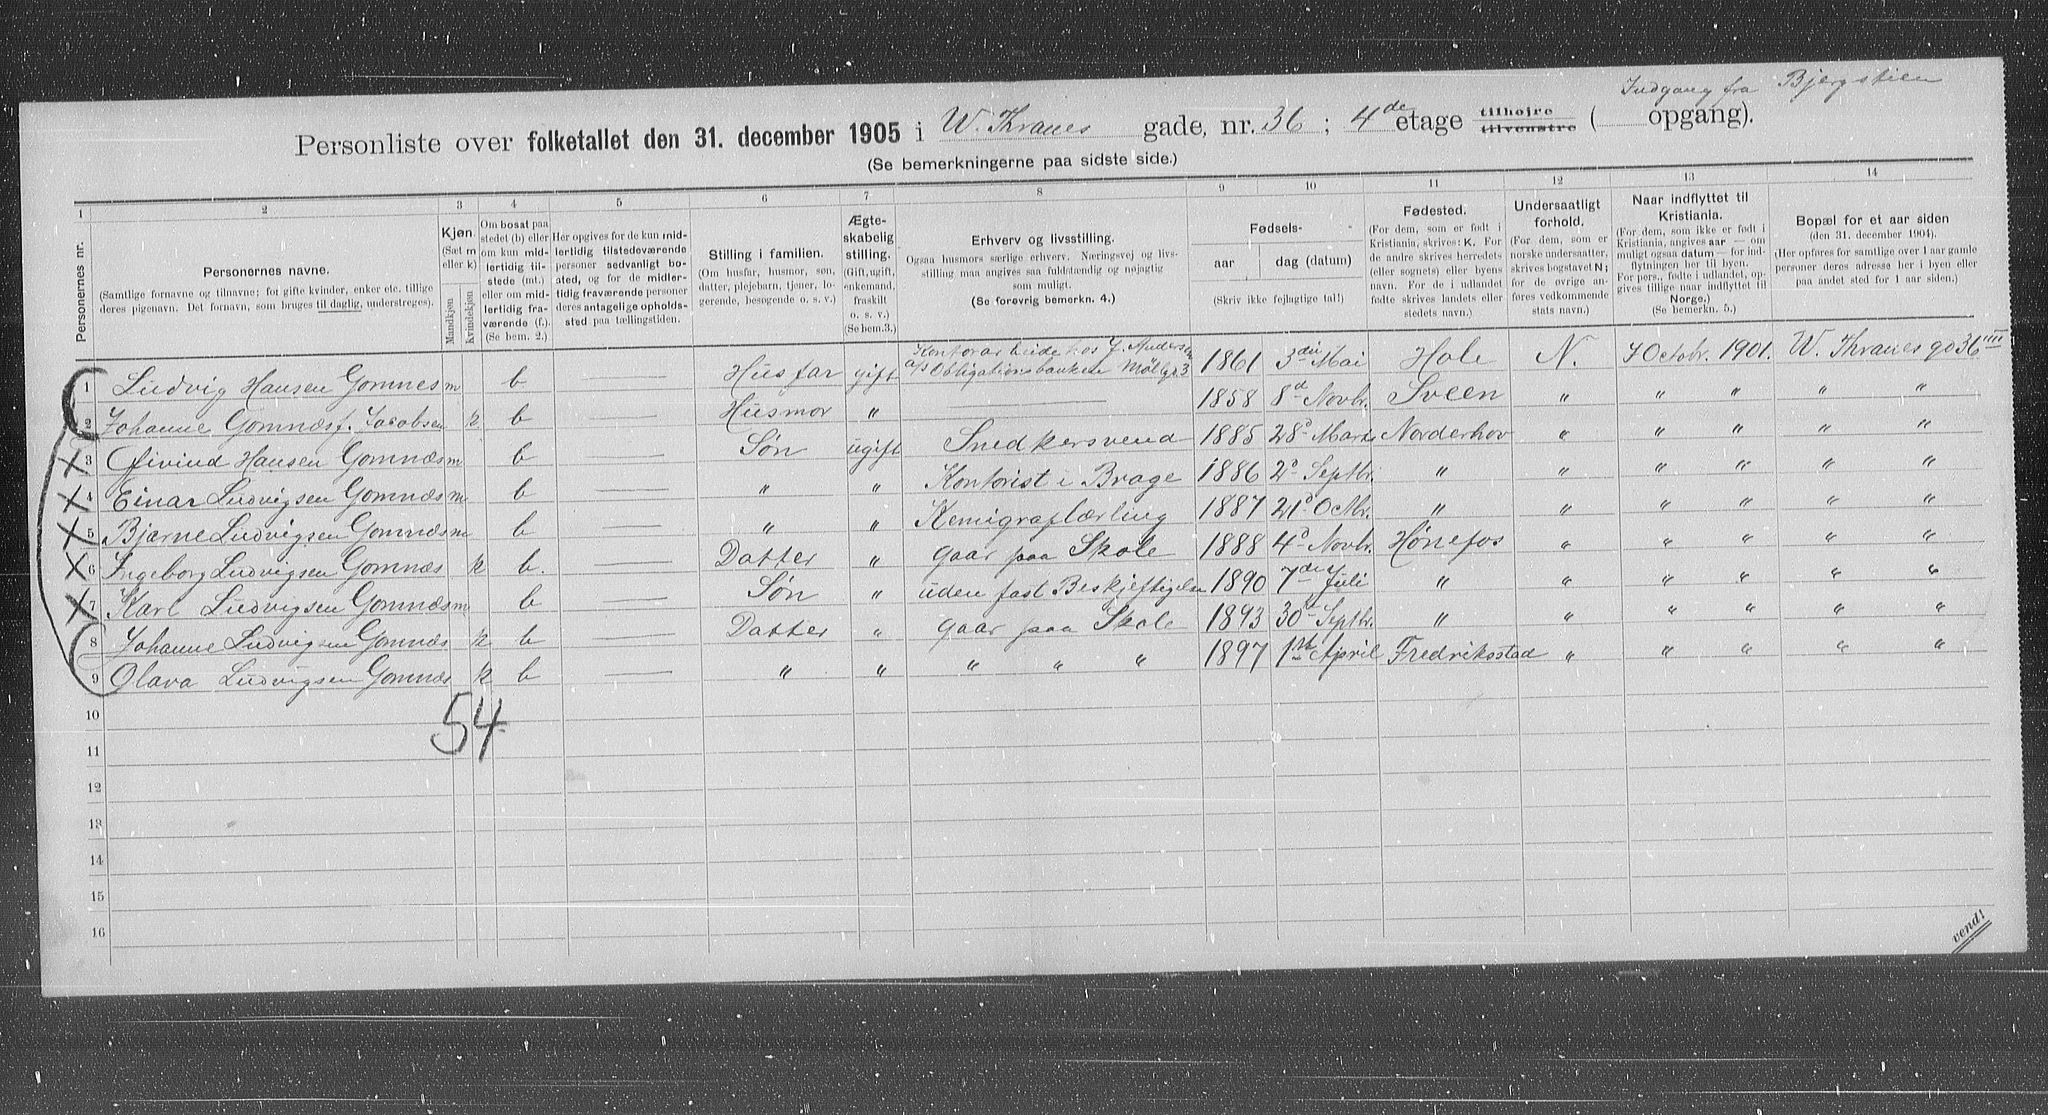 Indgang fra Bjergstien
Personliste over folketallet den 31. december 1905 i W. Thranes gade, nr. 36 ; 4de etage tilhøjre tilvenstre ( opgang).
(Se bemerkningerne paa sidste side.)
1 2 3 4 5 6 7 8 9 10 11 12 13 14
Personernes nr.
Personernes navne.
(Samtlige fornavne og tilnavne; for gifte kvinder, enker etc. tillige
deres pigenavn. Det fornavn, som bruges til daglig, understreges).
Kjøn.
(Sæt m
eller k)
Mandkjøn
Kvindekjøn
Om bosat paa
stedet (b) eller
om kun mid-
lertidig til-
stede (mt.)
eller om mid-
lertidig fra-
værende (f.).
(Se bem. 2.)
Her opgives for de kun mid-
lertidig tilstedeværende
personer sedvanlig bo-
sted, og for de midler-
tidig fraværende personer
deres antagelige opholds-
sted paa tællingstiden.
Stilling i familien.
(Om husfar, husmor, søn,
datter, plejebarn, tjener, lo-
gerende, besøgende o. s. v.)
Ægte-
skabelig
stilling.
(Gift, ugift,
enkemand,
fraskilt
o. s. v.)
(Se bem.3.)
Erhverv og livsstilling.
Ogsaa husmors særlige erhverv. Næringsvej og livs-
stilling maa angives saa fuldstændig og nøjagtig
som muligt.
(Se forøvrig bemerkn. 4.)
Fødsels-
aar dag (datum)
(Skriv ikke fejlagtige tal!)
Fødested.
(For dem, som er født i
Kristiania, skrives: K. For
de andre skrives herredets
(eller sognets) eller byens
navn. For de i udlandet
fødte skrives landets eller
stedets navn.)
Undersaatligt
forhold.
(For dem, som er
norske undersaatter,
skrives bogstavet N;
for de øvrige an-
føres vedkommende
stats navn.)
Naar indflyttet til
Kristiania.
(For dem, som ikke er født i
Kristiania, angives aar — om
muligt ogsaa datum — for ind-
flytningen her til byen.
For pers., fødte i udlandet, op-
gives tillige naar indflyttet til
Norge.)
(Se bemerkn. 5.)
Bopæl for et aar siden
(den 31. december 1904).
(Her opføres for samtlige over 1 aar gamle
personer deres adresse her i byen eller
paa andet sted for 1 aar siden.)
1 Ludvig Hansen Gomnes m b — Husfar gift Kontorarbeide hos J. Andersen A/S Obligationsbanken 1861 3die Mai Hole N. 7 Octbr. 1901. W. Thranes gd 36 IIII
2 Johanne Gomnæs f. Jacobsen k b — Husmor " — 1858 8d Novbr. Sveen " " " " "
3 Øivind Hansen Gomnæs m b — Søn ugift Snedkersvend 1885 28d Marts Norderhov " " " " "
4 Einar Ludvigsen Gomnæs m b — " " Kontorist i Brage 1886 2d Septbr. " " " " " "
5 Bjarne Ludvigsen Gomnæs m b — " " Kemigraflærling 1887 21d Octbr. " " " " " "
6 Ingeborg Ludvigsen Gomnæs k b. — Datter " gaar paa Skole 1888 4d Novbr. Hønefos " " " " "
7 Karl Ludvigsen Gomnæs m b — Søn " uden fast Beskjeftigelse 1890 7de Juli " " " " " "
8 Johanne Ludvigsen Gomnæs k b — Datter " gaar paa Skole 1893 30d Septbr. " " " " " "
9 Olava Ludvigsen Gomnæs k b — " " " " " 1897 1ste April Fredriksstad " " " " "
10
54
11
12
13
14
15
16
vend!